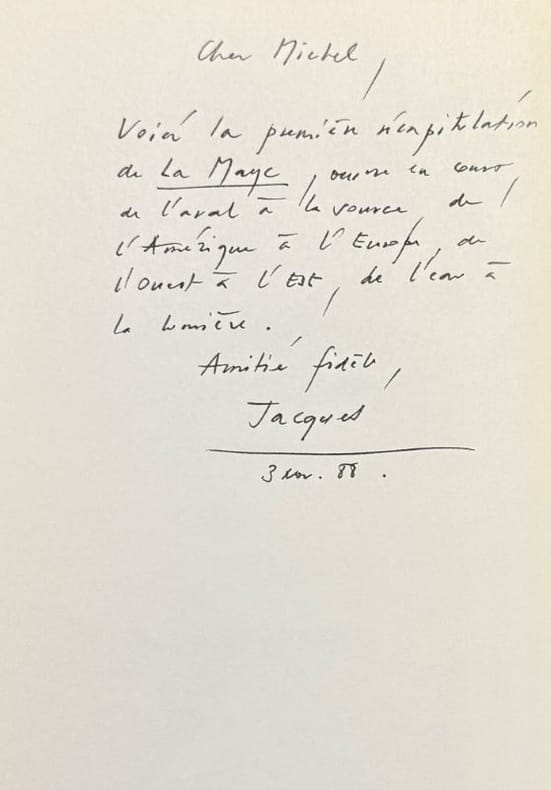 Cher Michel,
Voici la première récapitulation
de La Maye, œuvre en cours,
de l'aval à la source, de
l'Amérique à l'Europe, de
l'Ouest à l'Est, de l'eau à
la lumière.
Amitié fidèle,
Jacques
3 nov. 88.